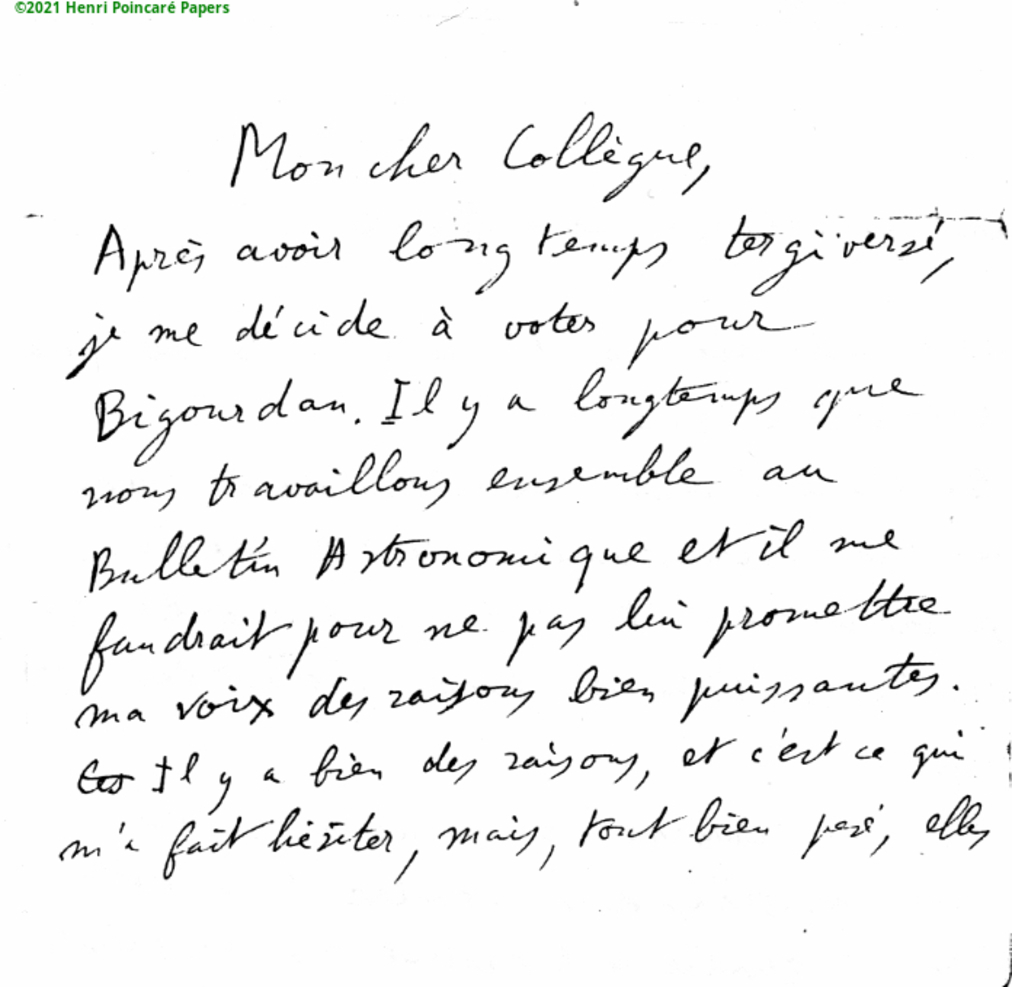 ©2021 Henri Poincaré Papers
Mon cher Collègue,
Après avoir longtemps tergiversé,
je me décide à voter pour
Bigourdan. Il y a longtemps que
nous travaillons ensemble au
Bulletin Astronomique et il me
faudrait pour ne pas lui promettre
ma voix des raisons bien puissantes.
Il y a bien des raisons, et c'est ce qui
m'a fait hésiter, mais, tout bien pesé, elles